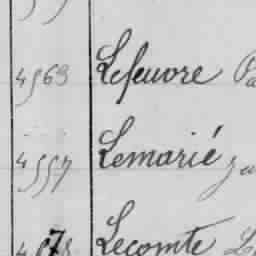 4563 Lefeuvre
4557 Lemarié
Lecomte